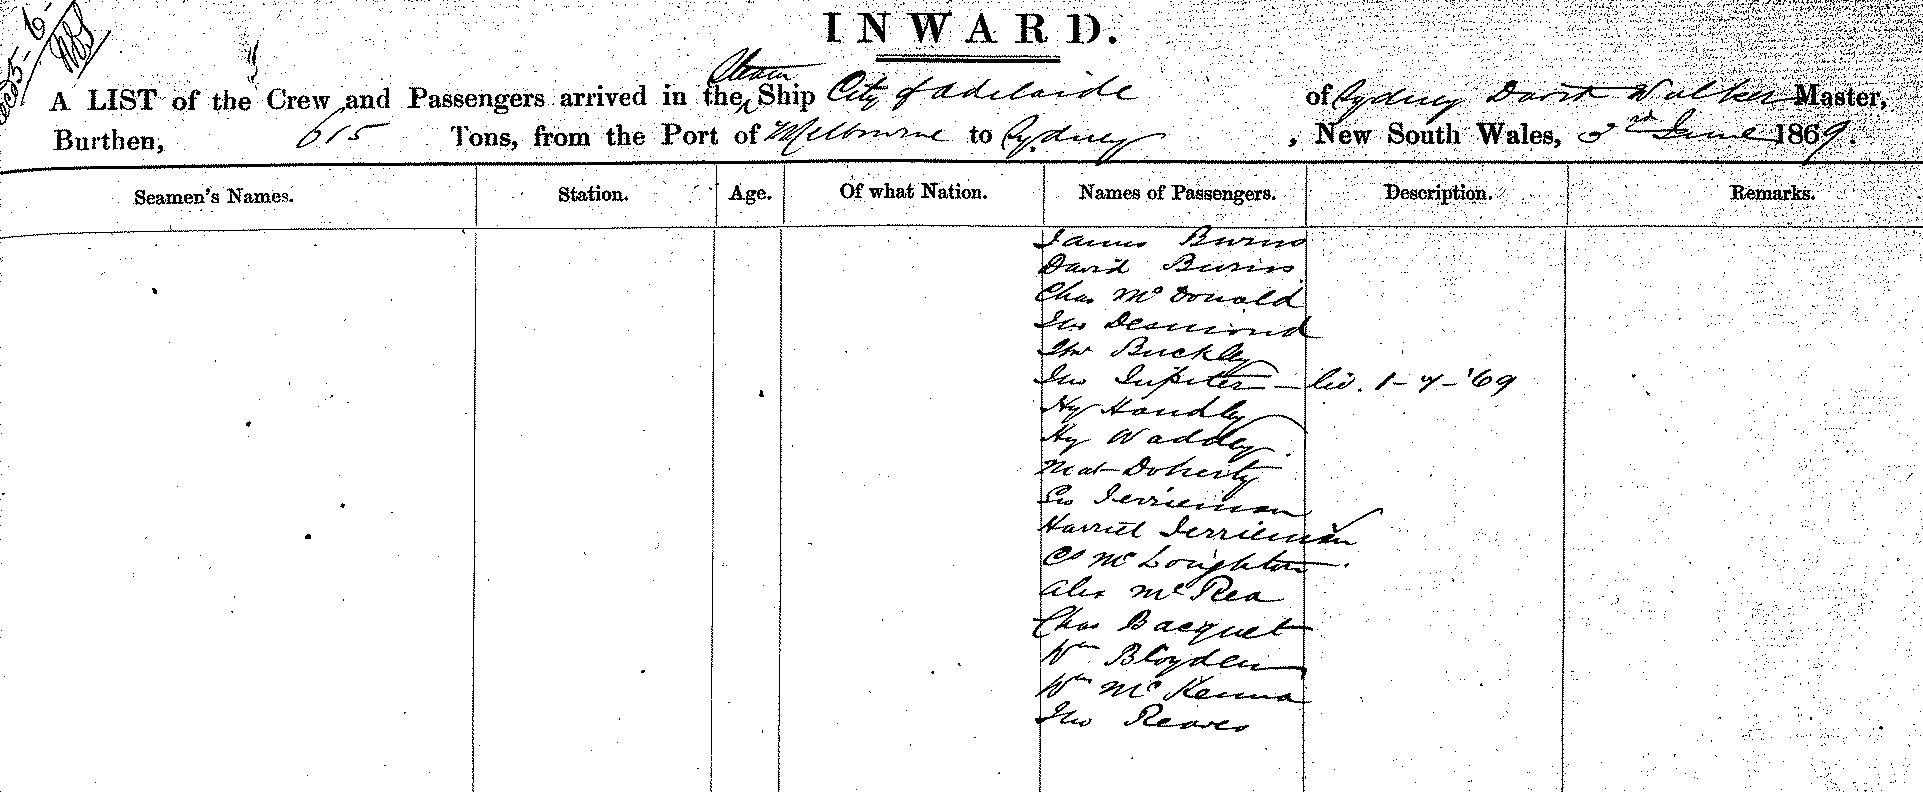 INWARD.
Steam
A LIST of the Crew and Passengers arrived in the Ship City of Adelaide of Sydney David Walker Master,
Burthen, 615 Tons, from the Port of Melbourne to Sydney, New South Wales, 3rd June 1869.
Seamen's Names. Station. Age. Of what Nation. Names of Passengers. Description. Remarks.
James Burns
David Burns
Chas McDonald
Jno Desmond
Buckley
Jno Jupiter - 1-7-'69
Hy Handly
Hy Waddey
Mat Doherty
Jerrieman
Harriet Jerrieman
McLoughton
Alex McRea
Chas Bacquet
Wm Bloyden
Wm McKenna
Jno Reaves